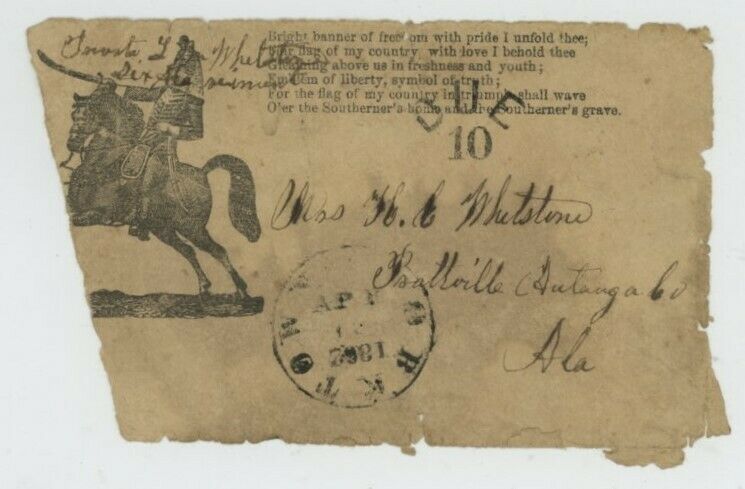 Bright banner of freedom with pride I unfold thee;
Fair flag of my country with love I behold thee
Gleaming above us in freshness and youth;
Emblem of liberty, symbol of truth;
For the flag of my country in triumph shall wave
O'er the Southerner's home and the Southerner's grave.
DUE
10
Mrs H. C Whetstone
Prattville Autauga Co
Ala
APR
1862